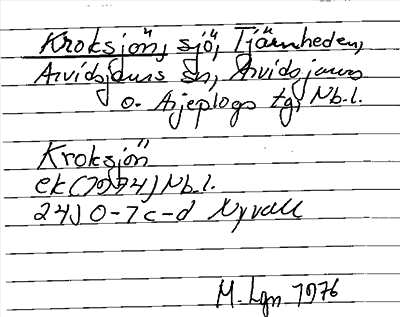 Kroksjön, sjö, Tjärnheden,
Arvidsjaurs sn, Arvidsjaurs
o. Arjeplogs tg, Nb.l.
Kroksjön
ek (1974) Nb.l.
24J 0-7c-d Nyvall
M. Lgn 1976